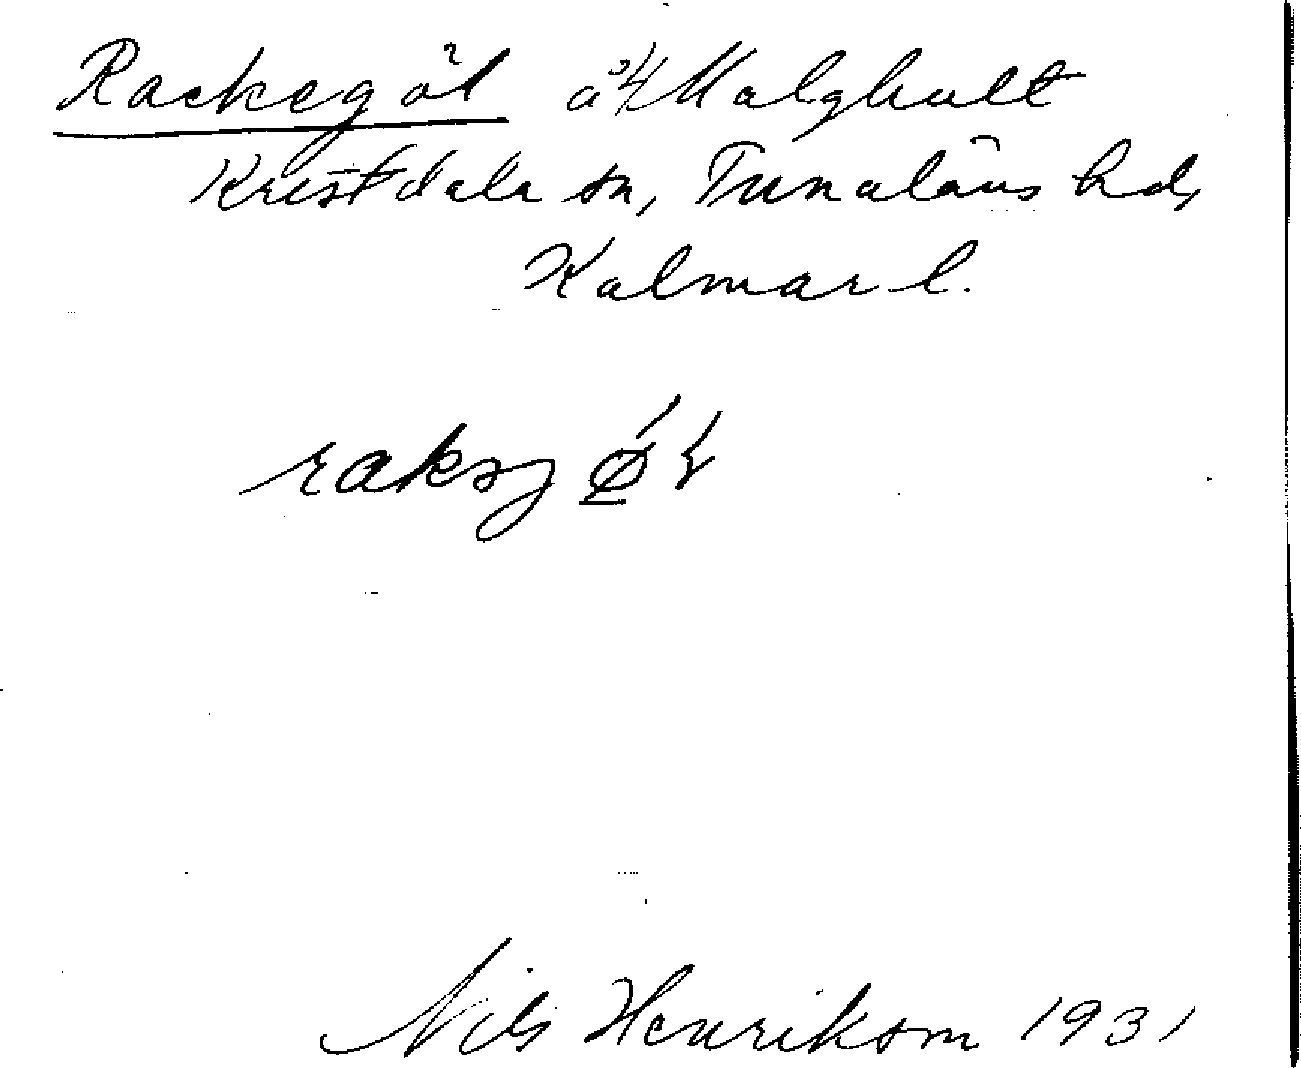 Rackegöl å Malghult
Kristdala sn, Tunaläns hd,
Kalmar l.
Nils Henrikson 1931